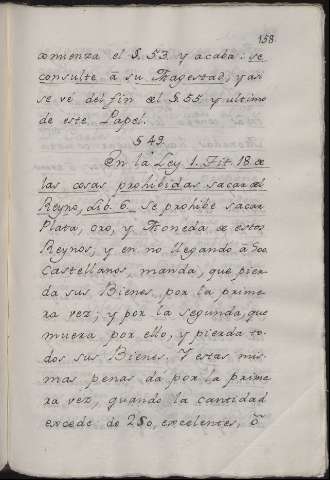 158
comienza el §. 53 y acaba: se
consulte à su Magestad, y asi
se vé del fin del §. 55 y ultimo
de este Papel.
§ 49.
En la Ley 1. Tit. 18 de
las cosas prohibidas sacar del
Reyno, Lib. 6. se prohibe sacar
Plata, oro, y Moneda de estos
Reynos, y en no llegando à 500
Castellanos, manda, que pier
da sus Bienes por la prime
ra vez; y por la segunda, que
muera por ello, y pierda to
dos sus Bienes. Y estas mis
mas penas dá por la prime
ra vez, quando la cantidad
excede de 250, excelentes, ô